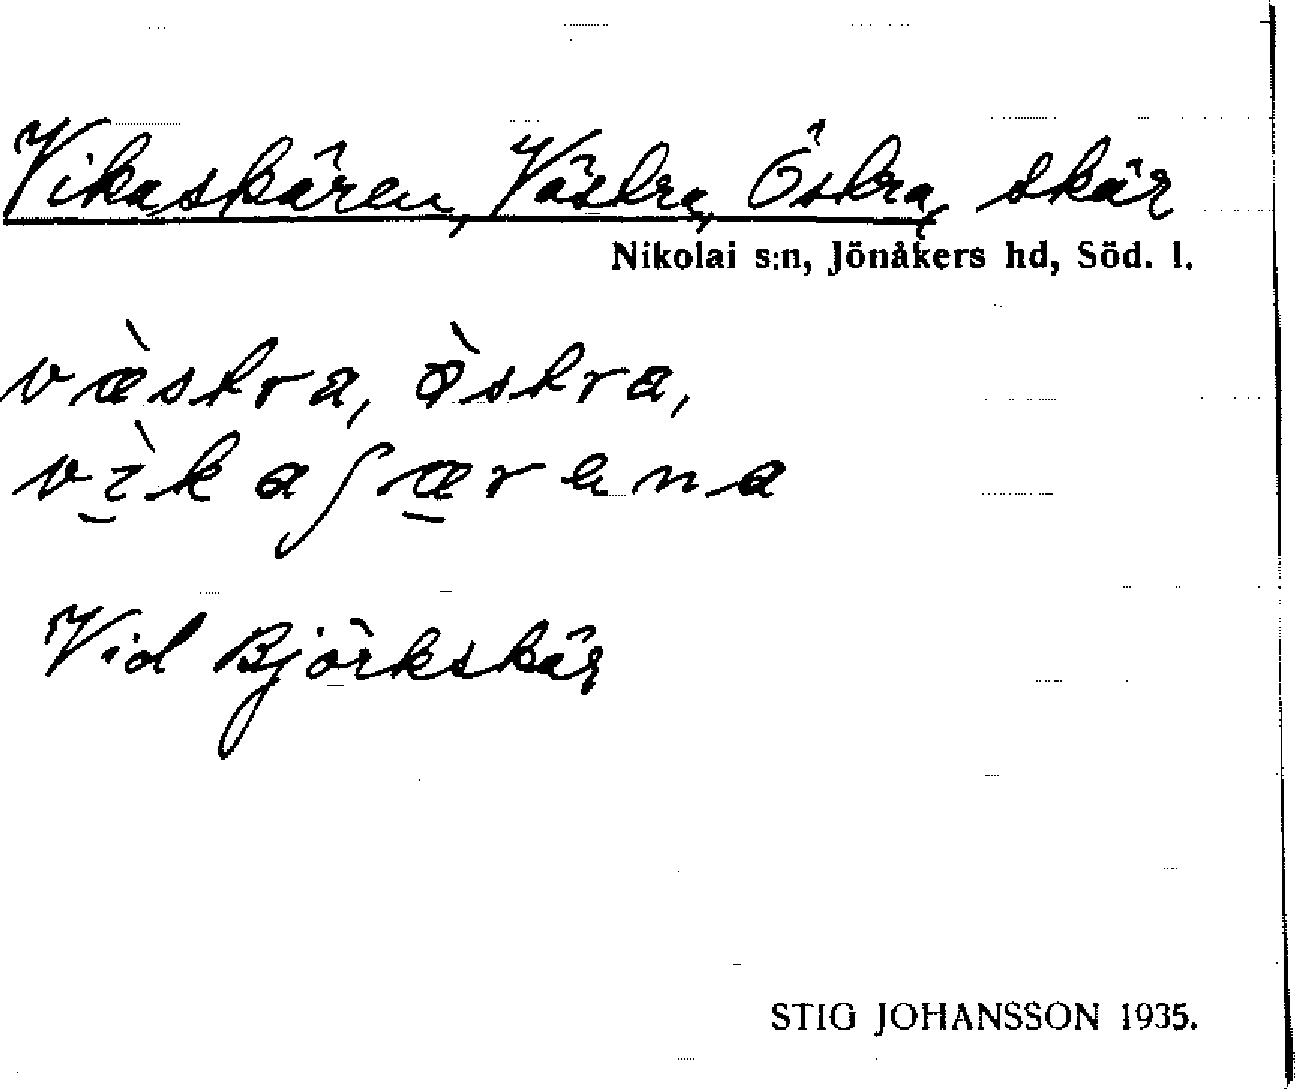 Vikaskären, Västra, Östra, skär
Nikolai s:n, Jönåkers hd, Söd. l.
væ̀stra, ø̀stra,
vì̱kaʃæ̱rena
Vid Björkskär
STIG JOHANSSON 1935.